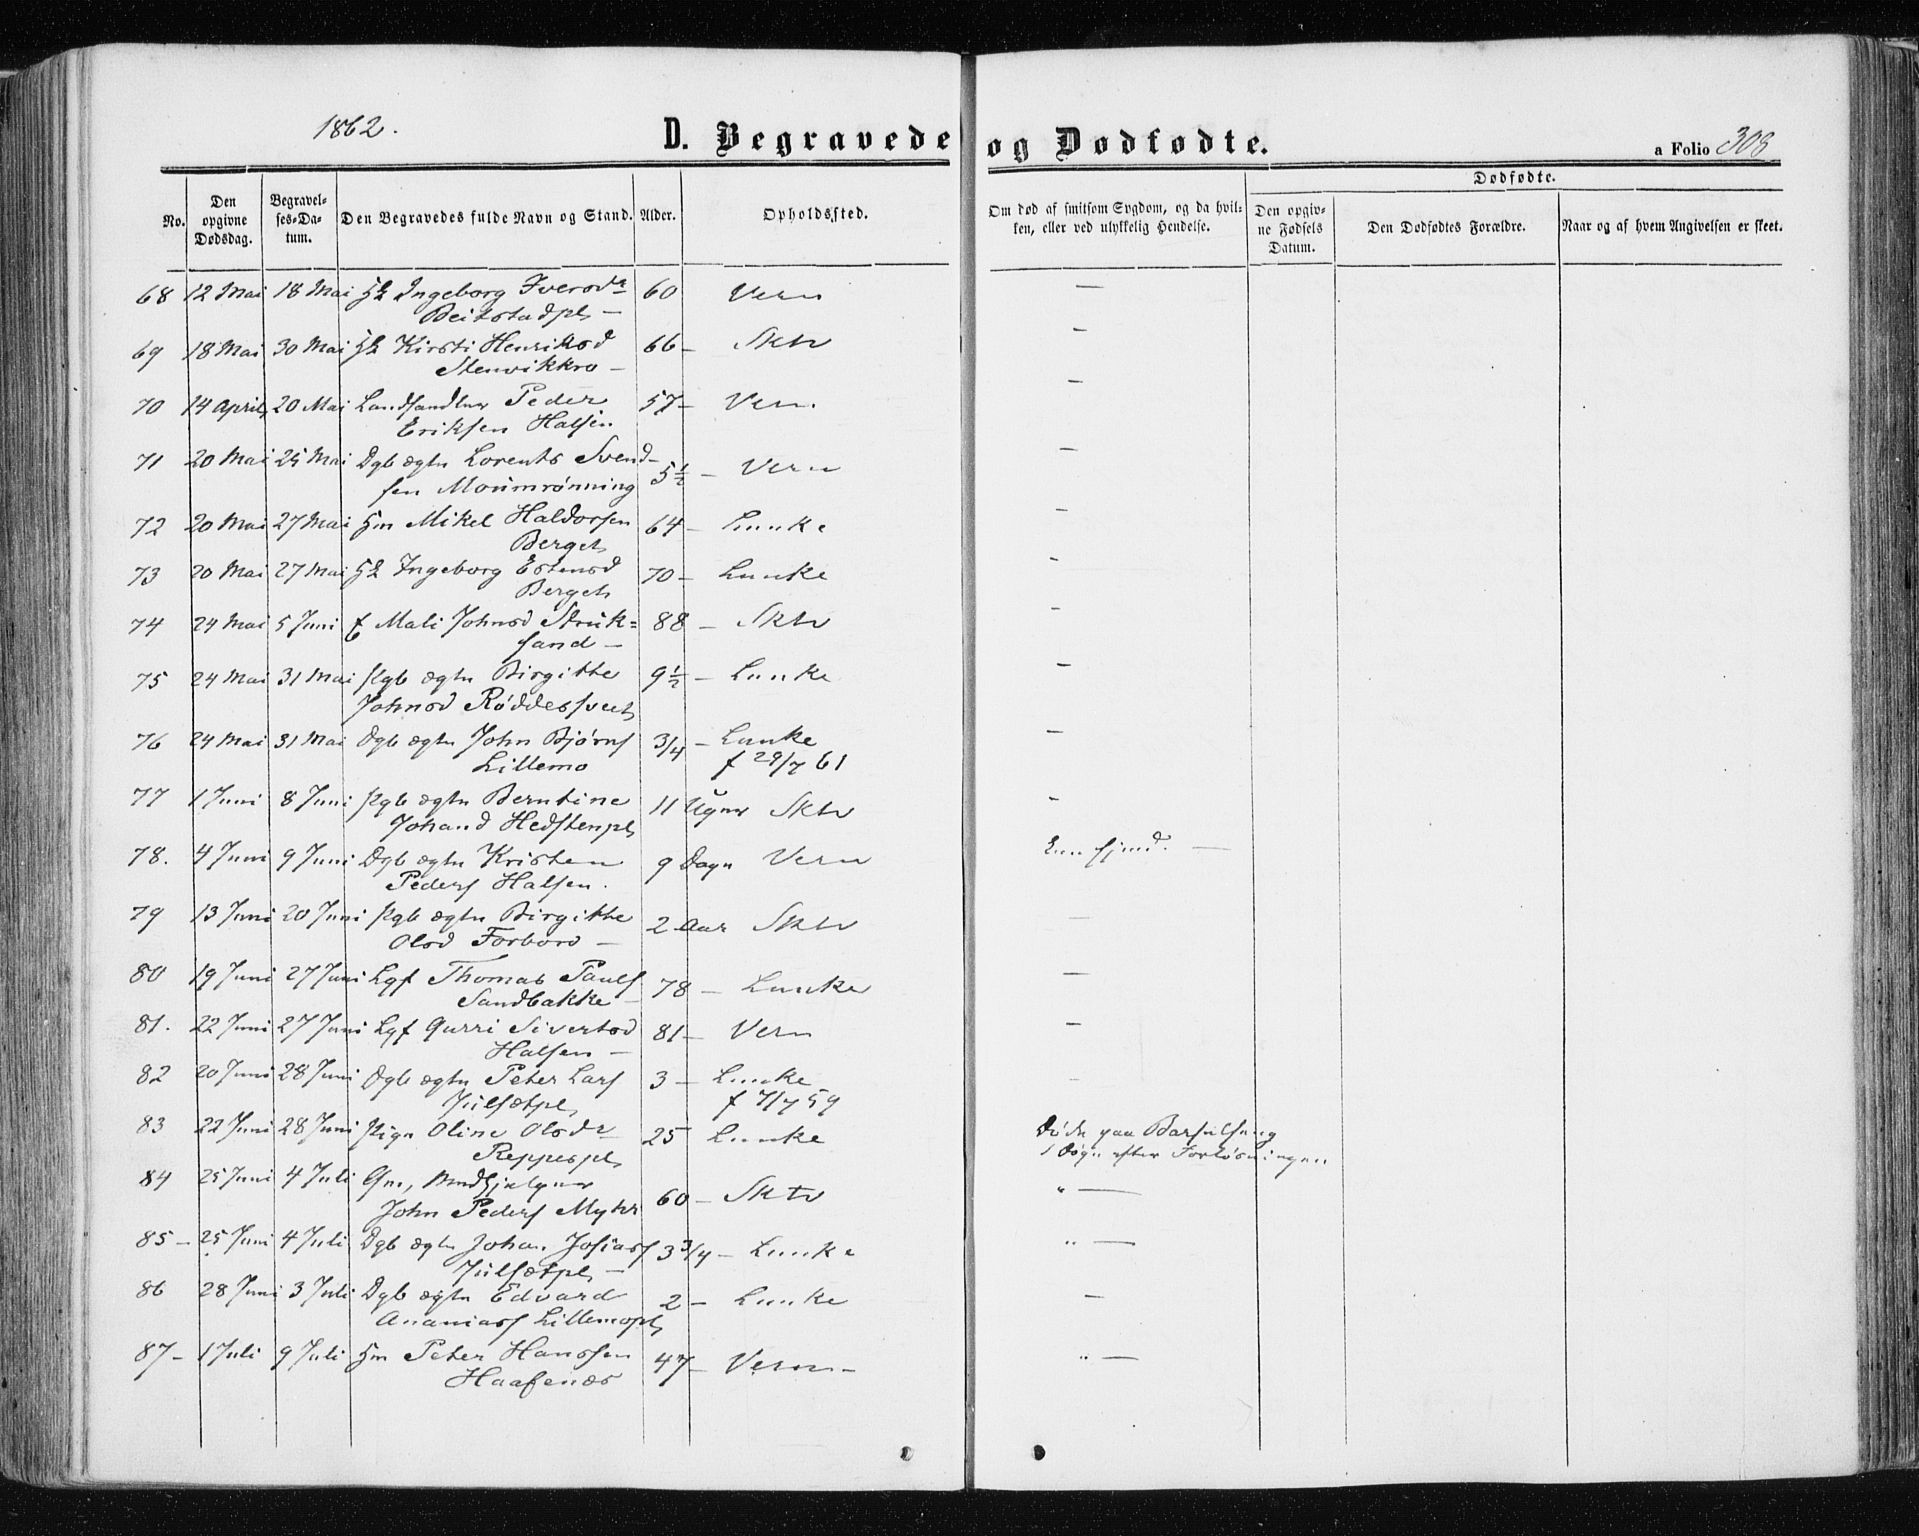 1862.
D. Begravede og Dødfødte.
a Folio 308
No.
Den opgivne Dødsdag.
Begravelses-Datum.
Den Begravedes fulde Navn og Stand.
Alder.
Opholdssted.
Om død af smitsom Sygdom, og da hvilken, eller ved ulykkelig Hendelse.
Dødfødte.
Den opgivne Fødsels Datum.
Den Dødfødtes Forældre.
Naar og af hvem Angivelsen er skeet.
68 12 Mai 18 Mai Ingeborg Iversdr 60 Vern —
Beitstadpl —
69 18 Mai 30 Mai Kirsti Henriksd 66 – Sktv –
Stenvikkro –
70 14 April 20 Mai Landhandler Peder 57 – Vern –
Eriksen Halsen
71 20 Mai 25 Mai Dgb ægtn Lorents Svend- 5½ – Vern –
sen Moumrønning
72 20 Mai 27 Mai Gm Mikel Haldorsen 64 – Lunke –
Berget
73 20 Mai 27 Mai Ingeborg Estensd 70 – Lunke –
Berget
74 24 Mai 5 Juni f Mali Johnsd Struk= 88 – Sktv –
sand –
75 24 Mai 31 Mai Pgb ægtn Birgitte 9½ – Lunke –
Johnsd Røddessvet
76 24 Mai 31 Mai Dgb ægtn John Bjørns 3/4 – Lunke –
Lillemo f 29/7 61
77 1 Juni 8 Juni Pgb ægtn Berntine 11 Uger Sktv –
Johand Hedstenpl
78. 4 Juni 9 Juni Dgb ægtn Kristen 9 Dage Vern —
Peders Halsen.
79 13 Juni 20 Juni Pgb ægtn Birgitte 2 Aar Sktv —
Olsd Forbord —
80 19 Juni 27 Juni Lgf Thomas Pauls 78 – Lunke —
Sandbakke –
81. 22 Juni 27 Juni Lgf Gurri Sivertsd 81 – Vern –
Halsen —
82 20 Juni 28 Juni Dgb ægtn Peter Lars 3 – Lunke –
Julsætpl f 7/7 59
83 22 Juni 28 Juni Pige Oline Olsdr 25 Lunke Døde paa Barselseng
Reppespl 1 Døgn efter Forløsningen
84 25 Juni 4 Juli Gm, 60 – Sktv " —
John Peders Myhr
85 – 25 Juni 4 Juli Dgb ægtn Johan Josias 3 3/4 – Lunke " —
Julsætpl —
86 28 Juni 3 Juli Dgb ægtn Edvard 2 – Lunke —
Ananias Lillemopl
87 – 1 Juli 9 Juli Gm Peter Hanssen 47 – Vern – " —
Haafenæs